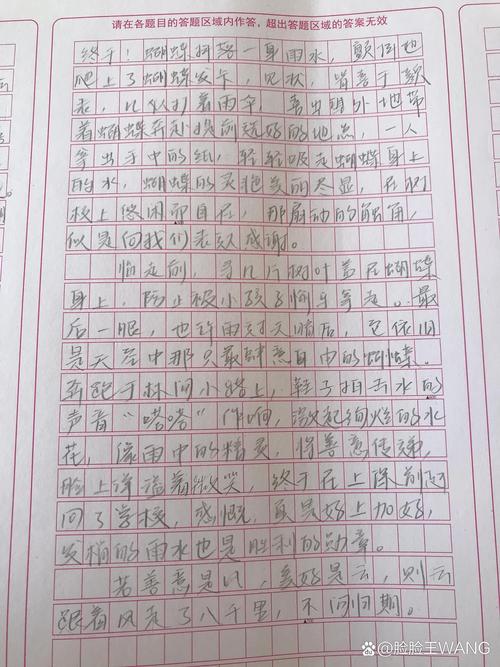 请在各题目的答题区域内作答，超出答题区域的答案无效
终于！蝴蝶抖落一身雨水，颤
爬上了蝴蝶发卡，见状，
，几人打着雨伞，喜出望外地带
着蝴蝶奔赴提前选好的地点，一人
拿出手中的纸，轻轻吸走蝴蝶身上
的水，蝴蝶的灵艳美丽尽显，在树
枝上悠闲而自在，那扇动的触角，
似是向我们表达感谢。
临走前，寻几片树叶盖在蝴蝶
身上，防止被小孩子恼乐拿走。最
后一眼，也许雨过天晴后，它依旧
是天空中那只最肆意自由的蝴蝶。
奔跑于林间小路上，鞋子拍击水的
声音“嗒嗒”作响，激起绚烂的水
花，像雨中的精灵，将善意传递，
脸上洋溢着微笑，终于在上课前
回了学校，感慨，真是好上加好，
发梢的雨水也是胜利的勋章。
若善意是风，美好是云，则云
跟着风走了八千里，不问归期。
@脸脸王WANG